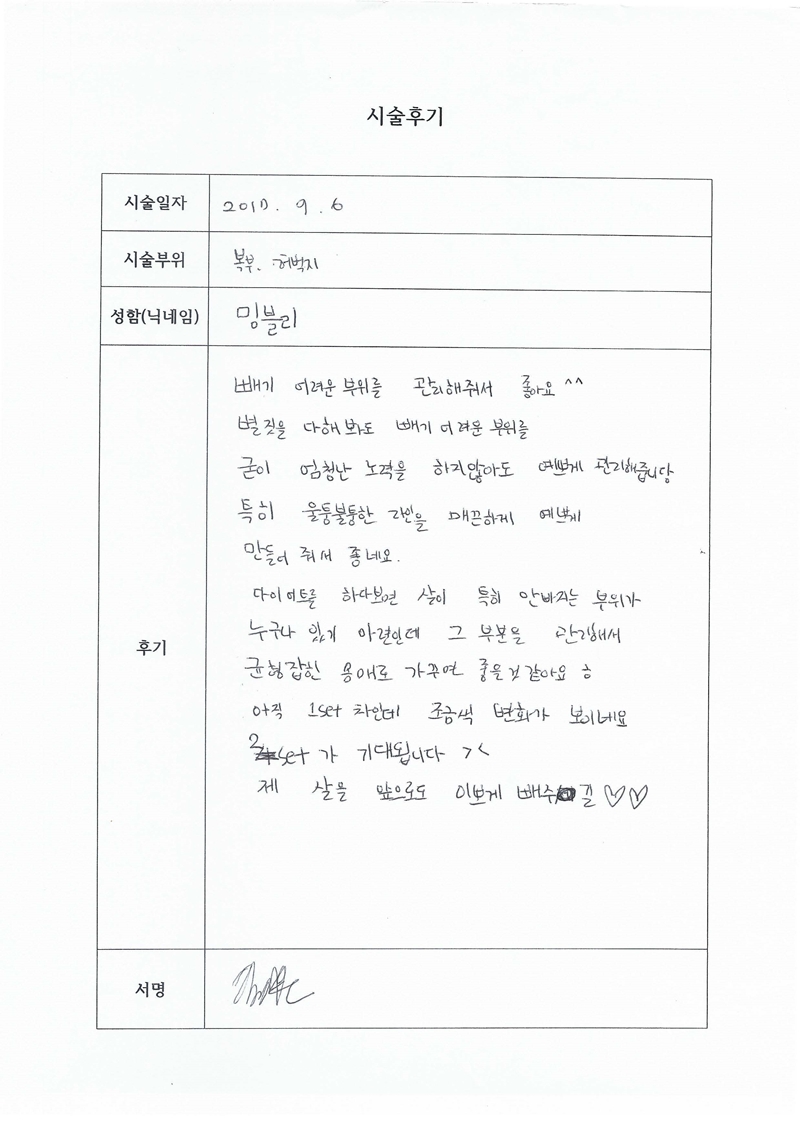 시술후기
시술일자 2017. 9. 6
시술부위 복부. 허벅지
성함(닉네임) 밍블리
후기
빼기 어려운 부위를 관리해줘서 좋아요 ^^
별짓을 다해봐도 빼기 어려운 부위를
굳이 엄청난 노력을 하지않아도 예쁘게 관리해줍니당
특히 울퉁불퉁한 라인을 매끈하게 예쁘게
만들어 줘서 좋네요.
다이어트를 하다보면 살이 특히 안빠지는 부위가
누구나 있기 마련인데 그 부분을 관리해서
균형잡힌 몸매로 가꾸면 좋을것 같아요 ㅎ
아직 1set 차인데 조금씩 변화가 보이네요
2set 가 기대됩니다 ><
제 살을 앞으로도 이쁘게 빼주길 ♡♡
서명